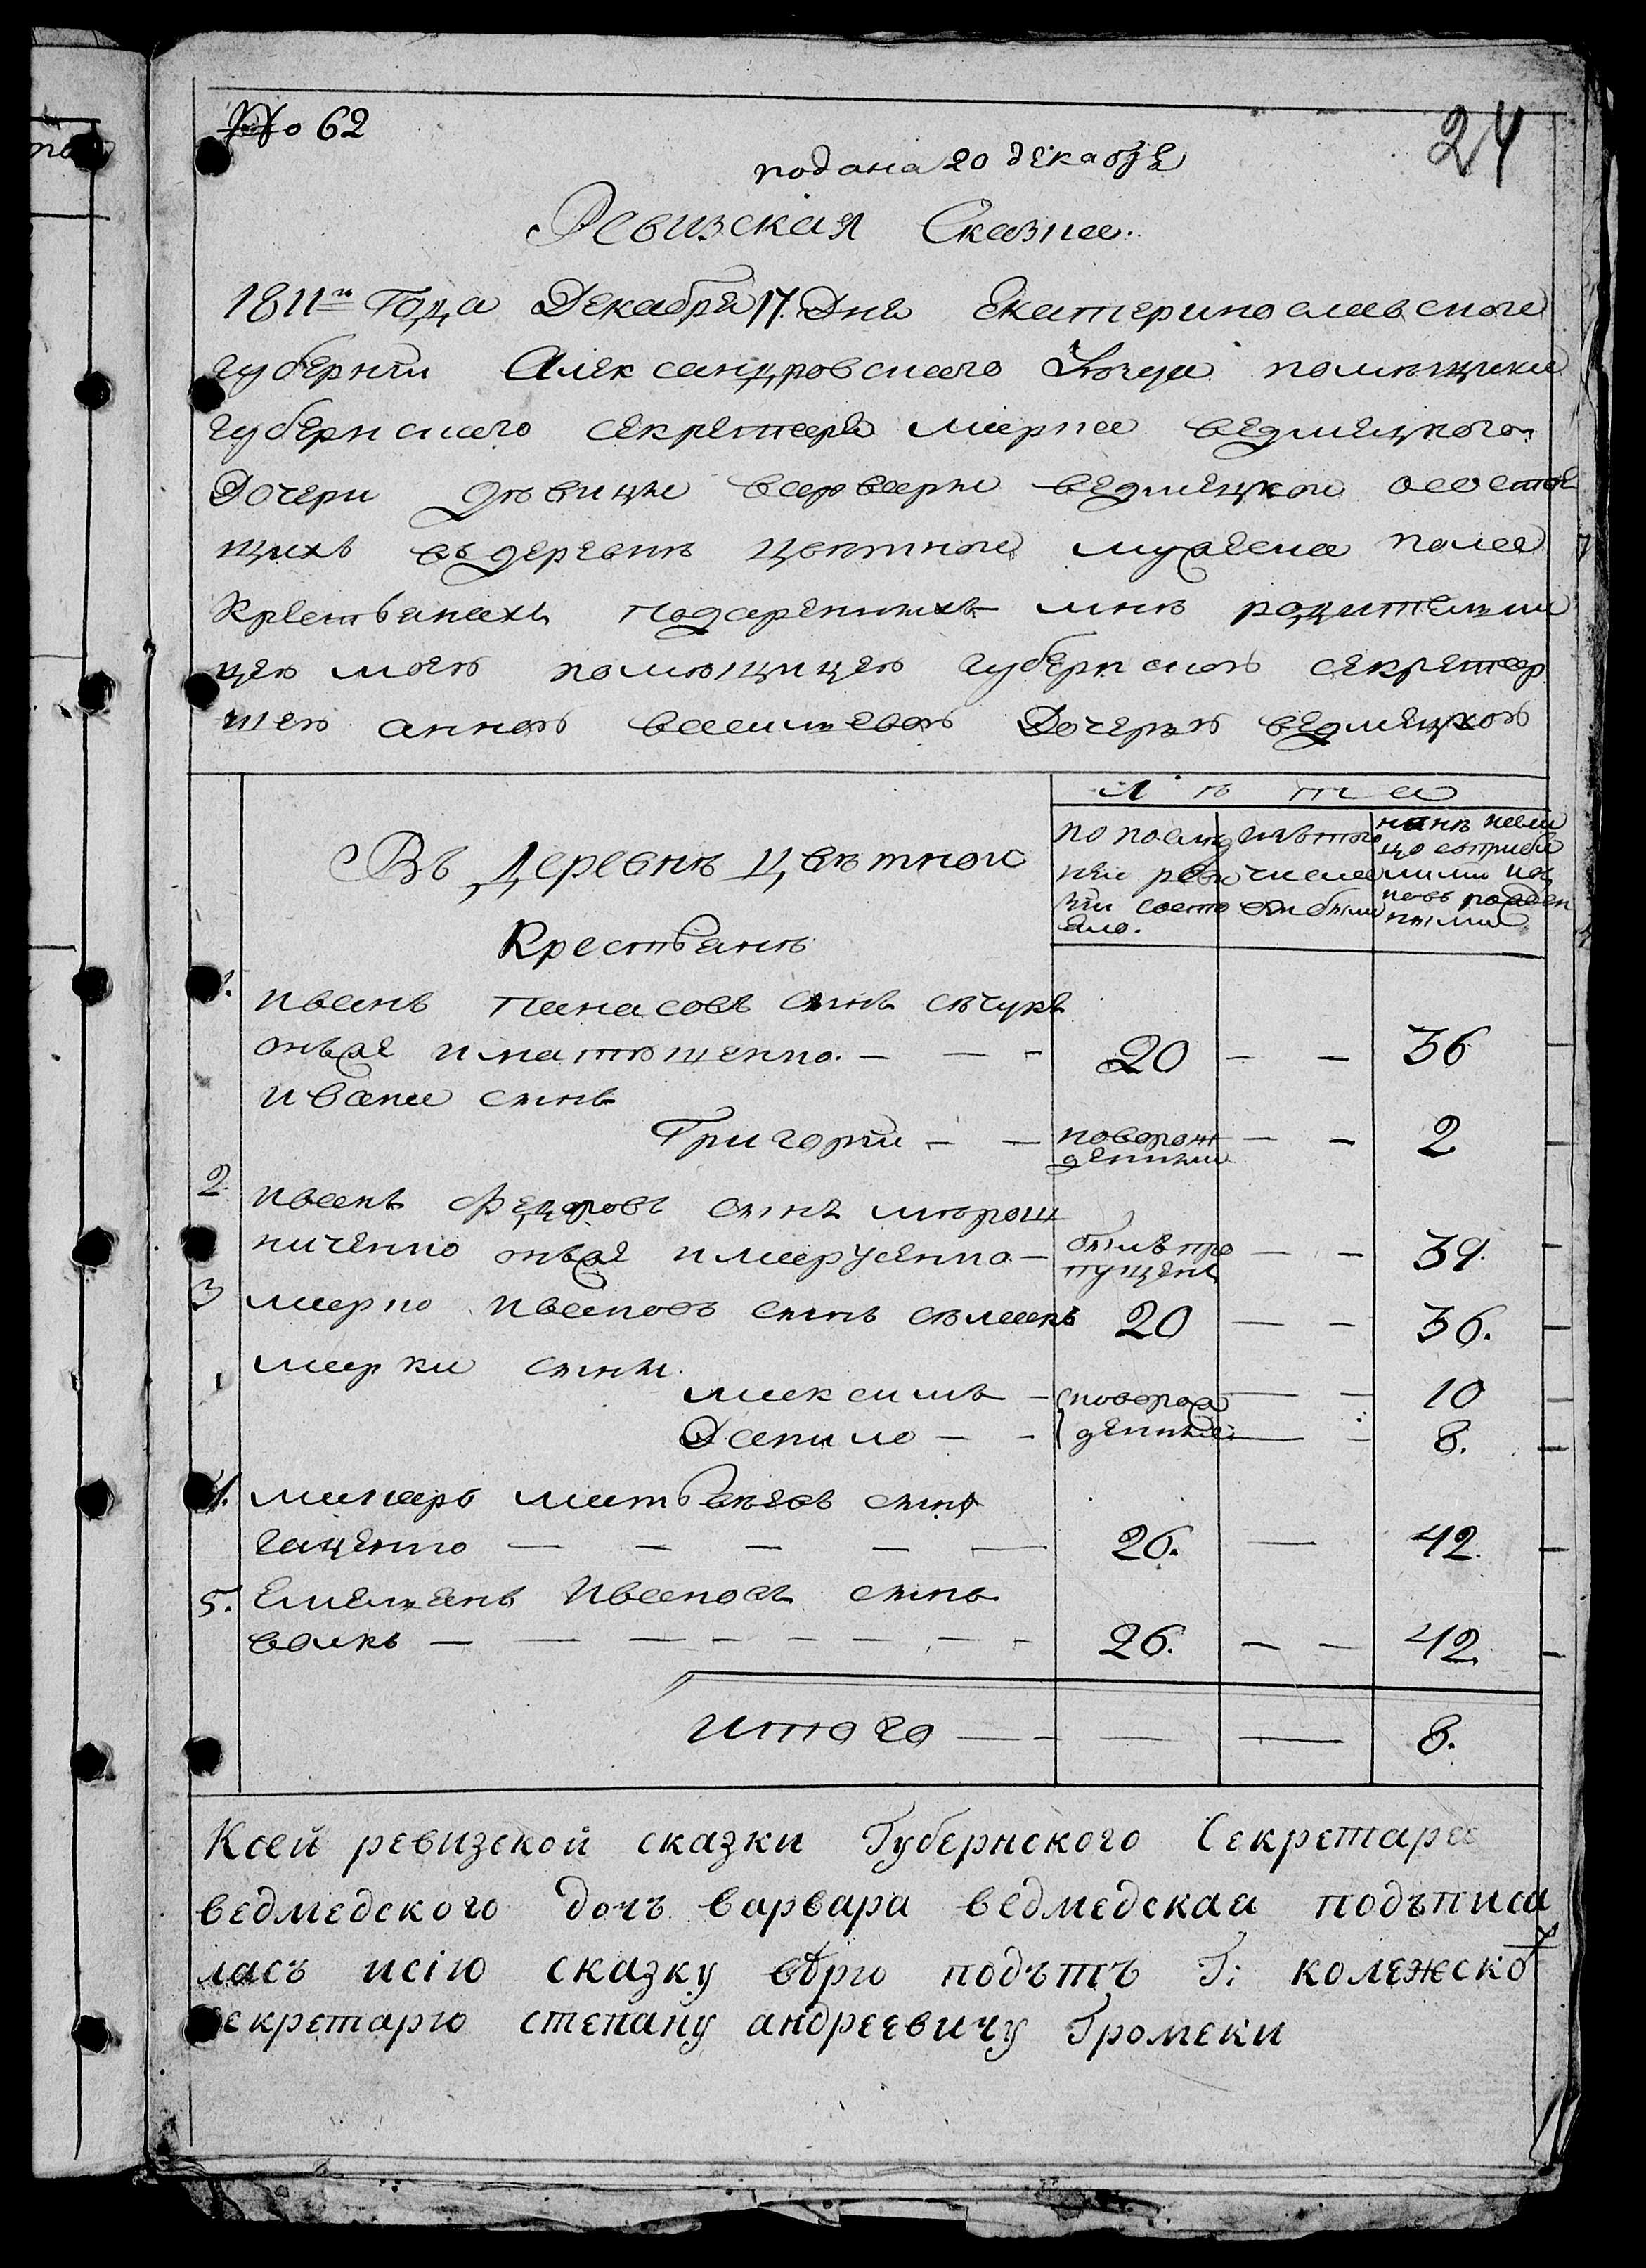 № 62
24
подана 20 декабря
Ревизская Сказка
1811го Года Декабря 17 Дня Екатеринославской
губернии Александровского Уезда помещика
губернского секретаря марка ведмецкого
Дочери девицы варвары ведмецкой о состоя
щихъ въ деревне цветной мужеска пола
Крестьянахъ подаренныхъ мне родительни
цею моею помещицею губернскою секретар
шею анною васильевою Дочерью ведмецкою
Лѣта
Въ Деревнѣ Цвѣтной
по послѣд
ней реви
зіи состо
яло.
изъ того
числа
выбыло
нынѣ на ли
цо съ прибы
лыми и
новорожден
ными
Крестьянъ
1. иванъ панасовъ сынъ сѣчукъ
онъже игнатющенко. — — — 20 — — 36
ивана сынъ
Григорий — — новорож
денный — — 2
2 иванъ федоровъ сынъ мирош
ниченко онъже имарусенко — былъ про
пущенъ — — 39.
3 марко ивановъ сынъ сѣмакъ 20 — — 36.
марки сыны
максимъ — новорож — — 10
Данило — — денные — — 8.
4. макаръ матвѣевъ сынъ
гаценко — — — — — 26. — 42.
5. Емельянъ Ивановъ сынъ
волкъ — — — — — — — — 26. — — 42.
итого — — — — 8.
Ксей ревизской сказки Губернского Секретаря
ведмедского дочъ варвара ведмедская подъписа
лась исію сказку вѣрю подътъ Г: колежско
секретарю степану андреевичу Громеки